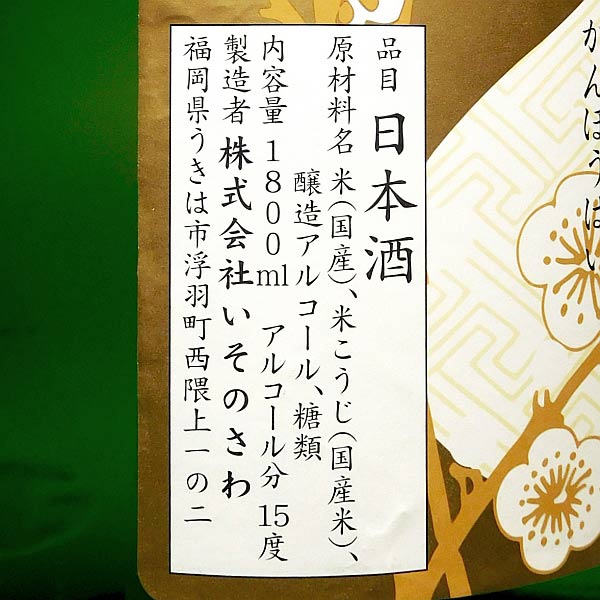 がんぽうはい
品目 日本酒
原材料名 米(国産)、米こうじ(国産米)、
醸造アルコール、糖類
内容量 1800ml アルコール分 15度
製造者 株式会社いそのさわ
福岡県うきは市浮羽町西隈上一の二